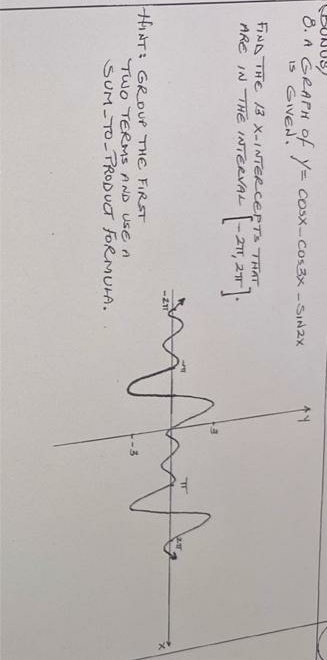 (BONUS)
8. A GRAPH OF Y = COSX - COS3X - SIN2X
IS GIVEN.
FIND THE 13 X-INTERCEPTS THAT
ARE IN THE INTERVAL [-2π, 2π].
HINT: GROUP THE FIRST
TWO TERMS AND USE A
SUM-TO-PRODUCT FORMULA.
Y
3
-2π
-π
π
2π
X
-3